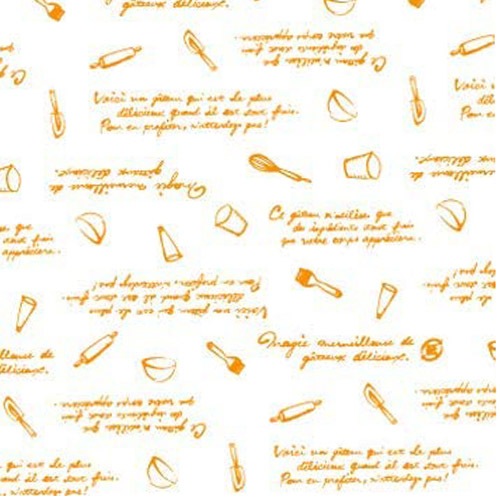 gâteaux délicieux.
Ce gâteau n'utilise que
du ingrédients tout frais
que votre corps appréciera.
Voici un gâteau qui est de plus
délicieux quand il est tout frais.
Pour en profiter, n'attendez pas!
Voici
Pour
Magie merveilleuse de
gâteaux délicieux.
Ce gâteau n'utilise que
du ingrédients tout frais
que votre corps appréciera.
que
tout frais
appréciera.
Voici un gâteau qui est de plus
délicieux quand il est tout frais.
Pour en profiter, n'attendez pas!
Magie merveilleuse de
gâteaux délicieux.
de
délicieux.
Ce gâteau n'utilise que
du ingrédients tout frais
que votre corps appréciera.
qui est de plus
quand il est tout frais.
n'attendez pas!
Voici un gâteau qui est de plus
délicieux quand il est tout frais.
Pour en profiter, n'attendez pas!